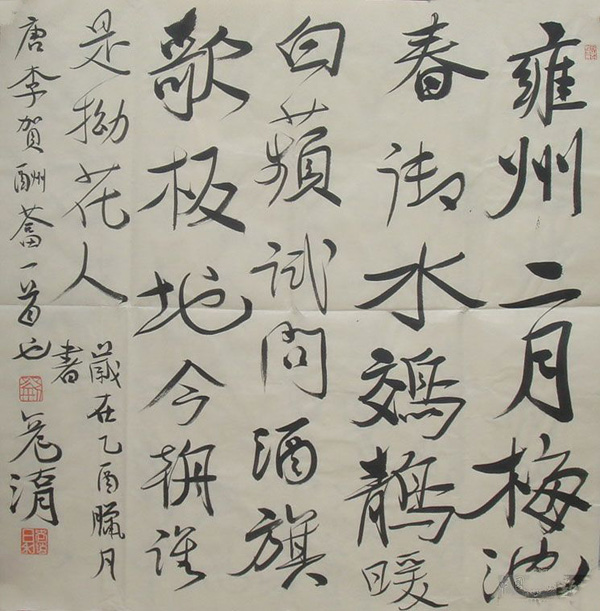 雍州二月梅池
春御水鵁鶄暖
白蘋試問酒旗
歌板地今朝誰
是拗花人
歲在乙酉臘月
書
唐李賀酬荅一首也